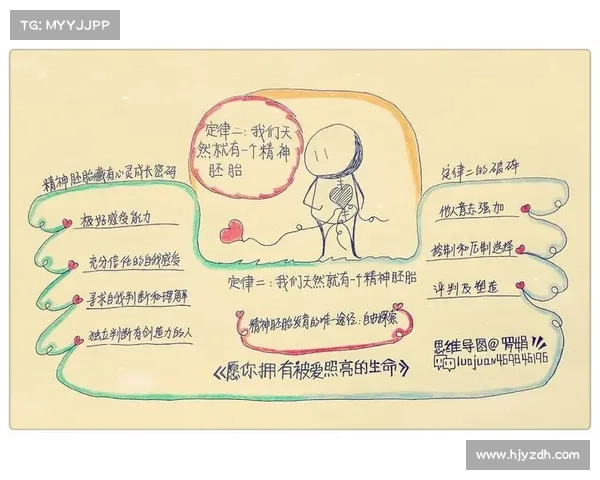 TG: MYYJJPP
定律二:我们天
然就有一个精神
胚胎
精神胚胎藏有心灵成长密码
极好感受能力
充分信任的自我感受
寻求自我判断和理解
独立判断有创造力的人
定律二的破碎
他人意志强加
控制和压制选择
评判及塑造
定律二:我们天然就有一个精神胚胎
精神胚胎发育的唯一途径:自由探索
《愿你拥有被爱照亮的生命》
思维导图@罗娟
luojuan469846196
www.hjyzdh.com